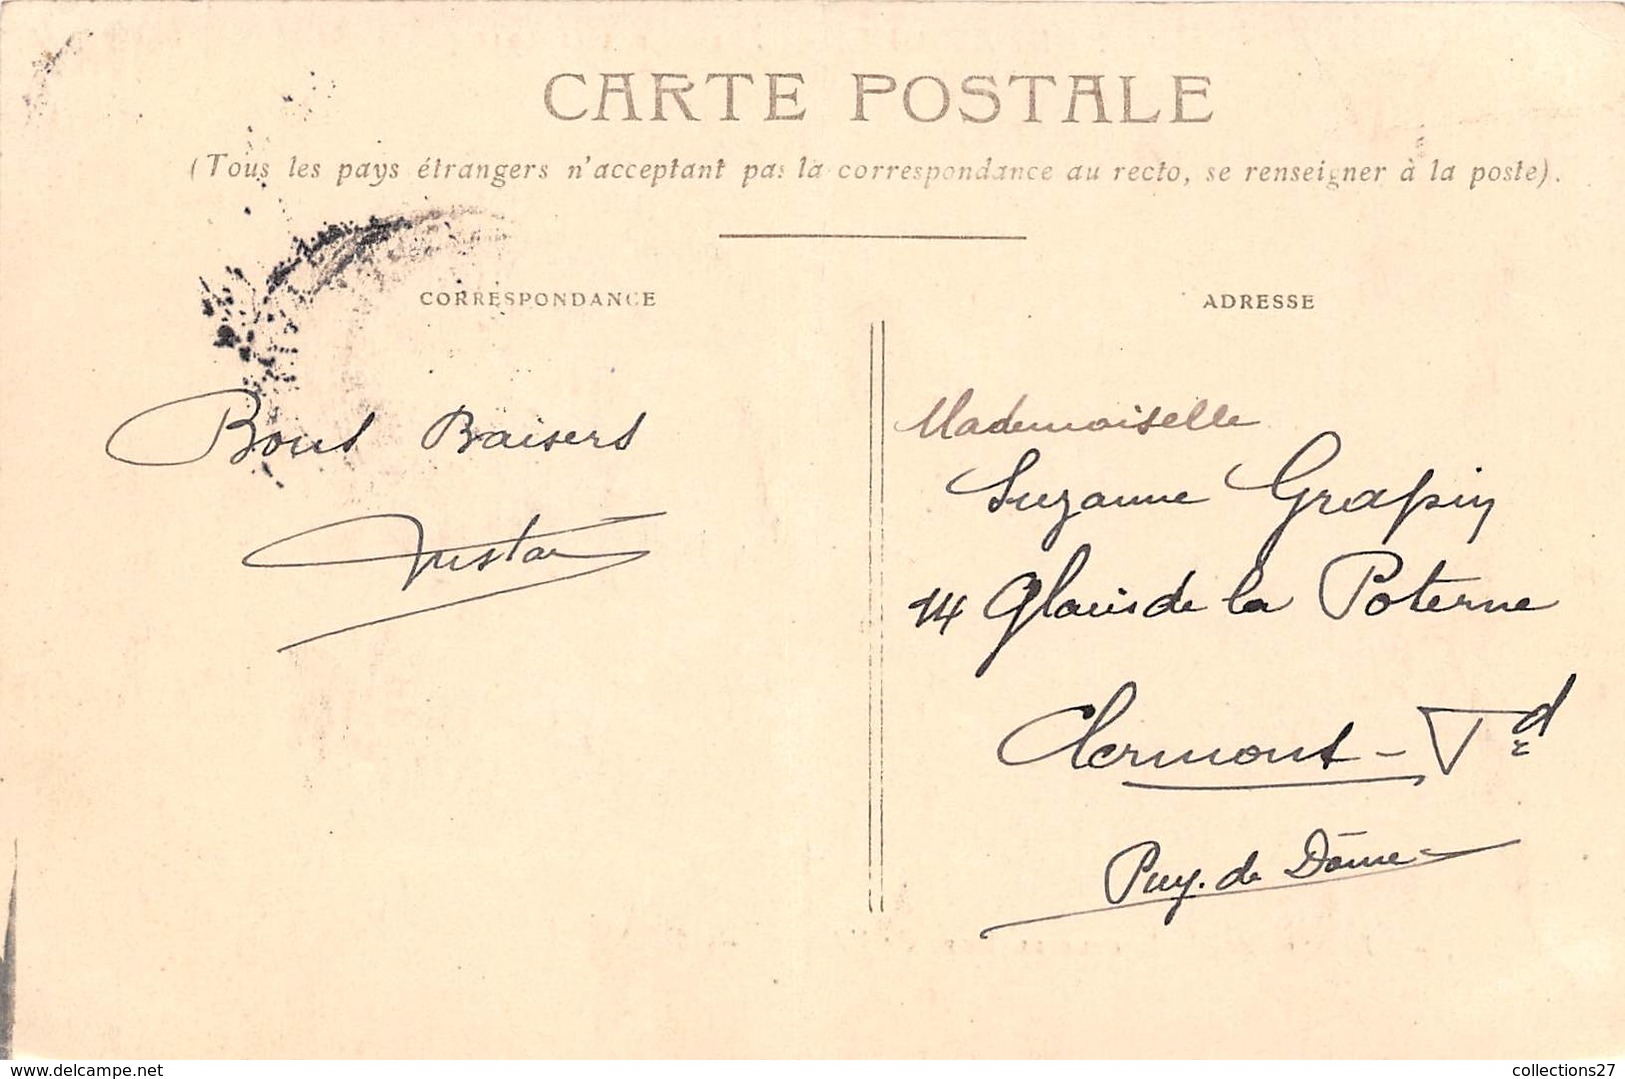 CARTE POSTALE
(Tous les pays étrangers n'acceptant pas la correspondance au recto, se renseigner à la poste).
CORRESPONDANCE
ADRESSE
Bons Baisers
Mademoiselle
Suzanne Grapin
14 Glacis de la Poterne
Clermont - Fd
Puy. de Dôme
www.delcampe.net
collections27